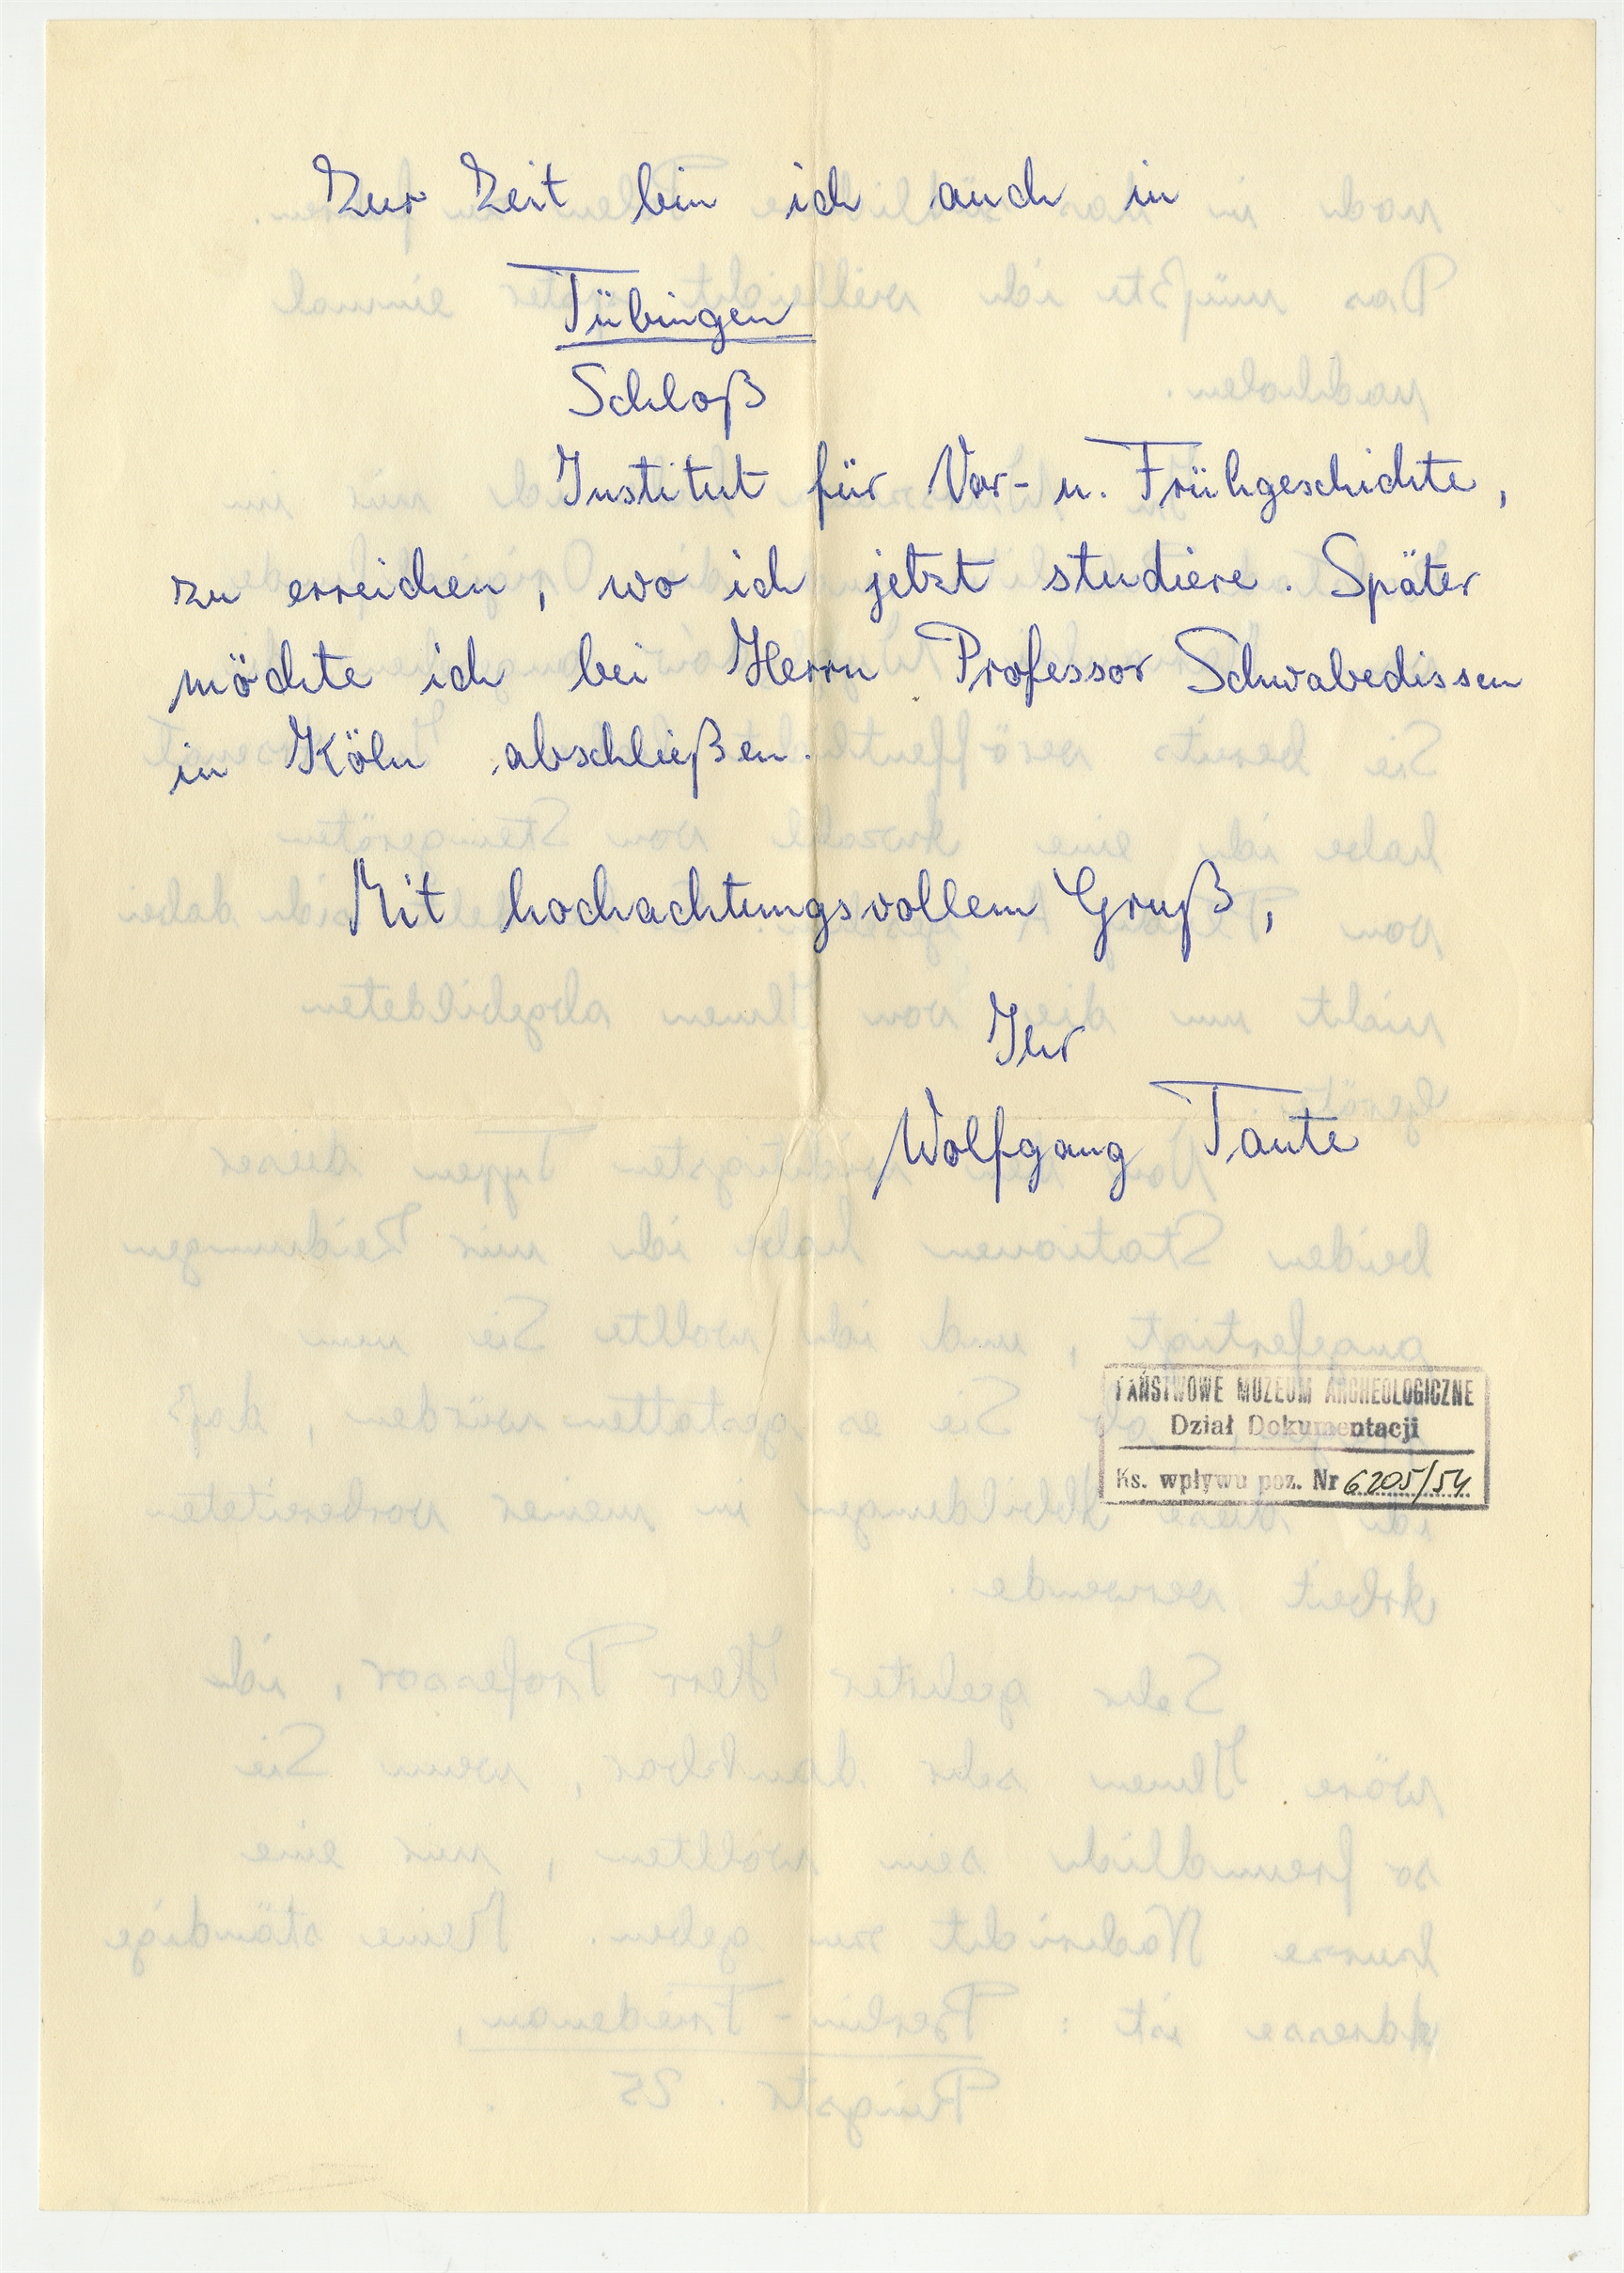 Zur Zeit bin ich auch in
Tübingen
Schloß
Institut für Vor- u. Frühgeschichte,
zu erreichen, wo ich jetzt studiere. Später
möchte ich bei Herrn Professor Schwabedissen
in Köln abschließen.
Mit hochachtungsvollem Gruß,
Ihr
Wolfgang Taute
PAŃSTWOWE MUZEUM ARCHEOLOGICZNE
Dział Dokumentacji
Ks. wpływu poz. Nr 6205/54